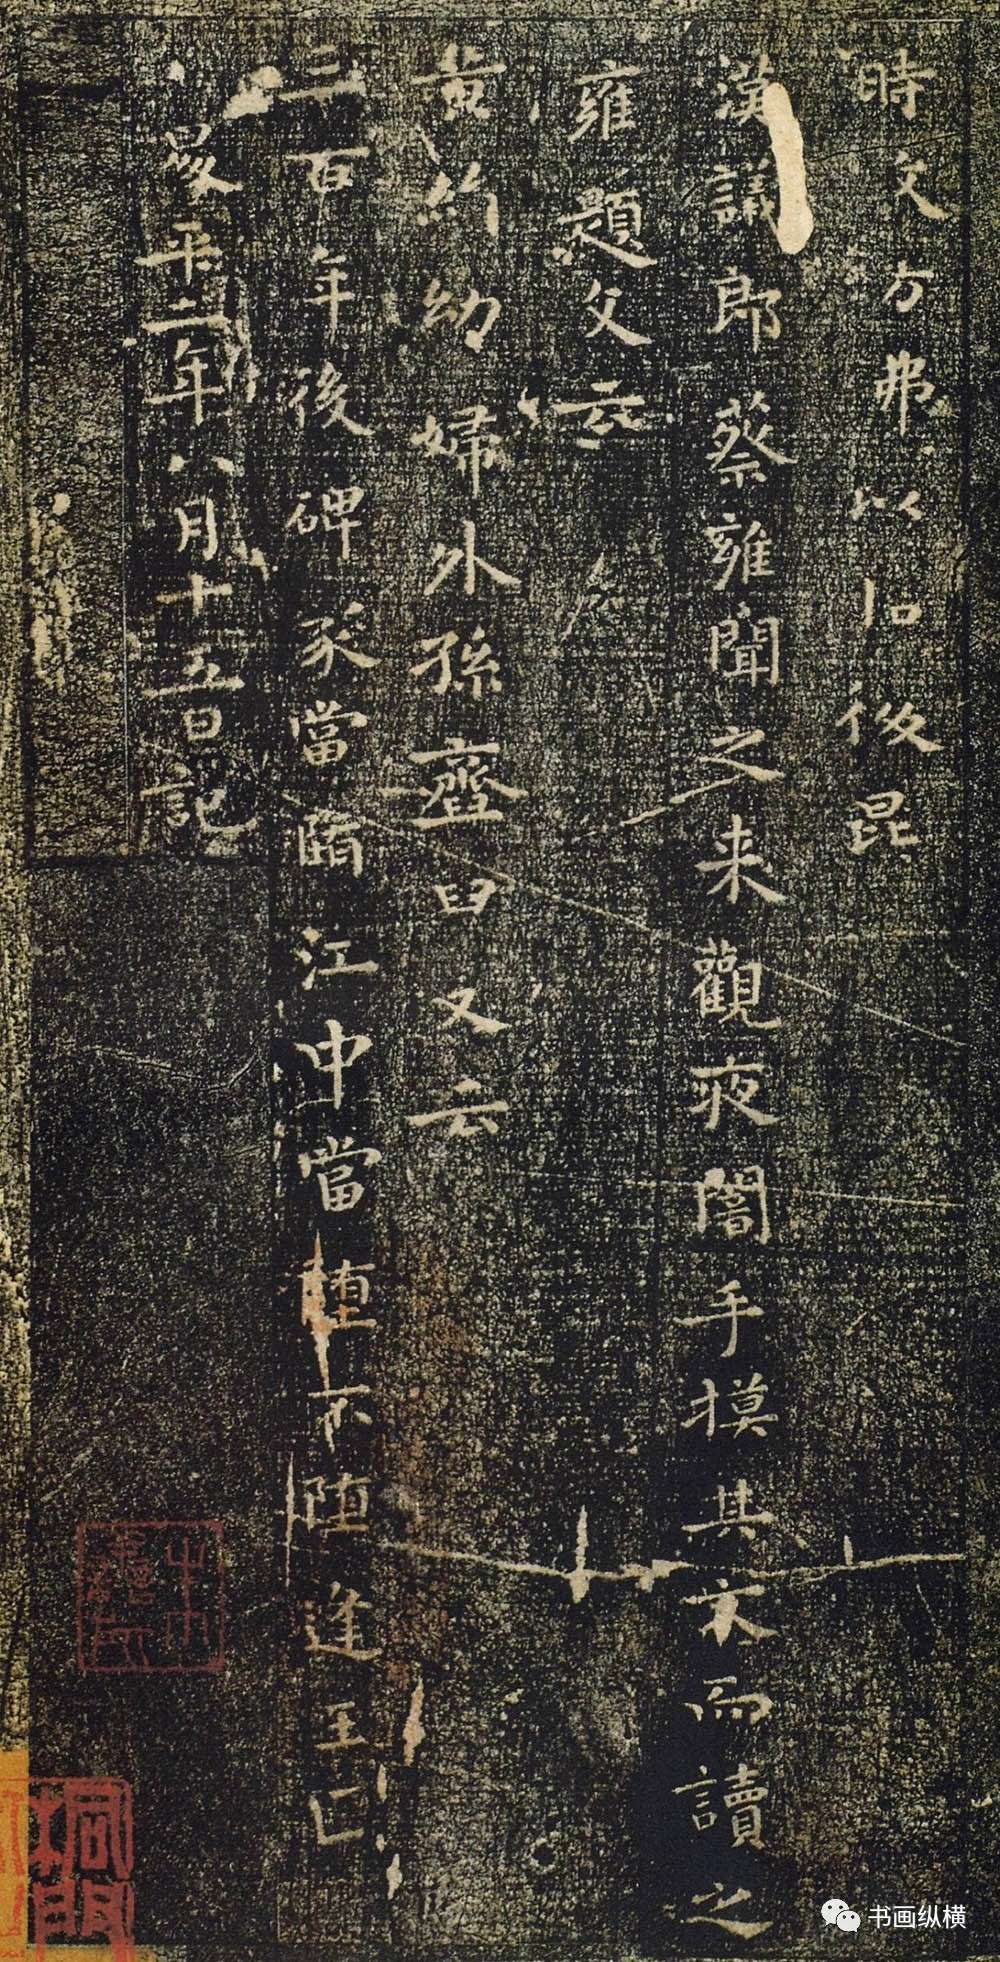 時文方弗以㕣後昆
漢議郎蔡雍聞之来觀夜闇手摸其文而讀之
雍題文云
黄絹幼婦外孫韲臼又云
三百年後碑冢當墮江中當墮不墮逢王叵
昇平二年八月十五日記
书画纵横